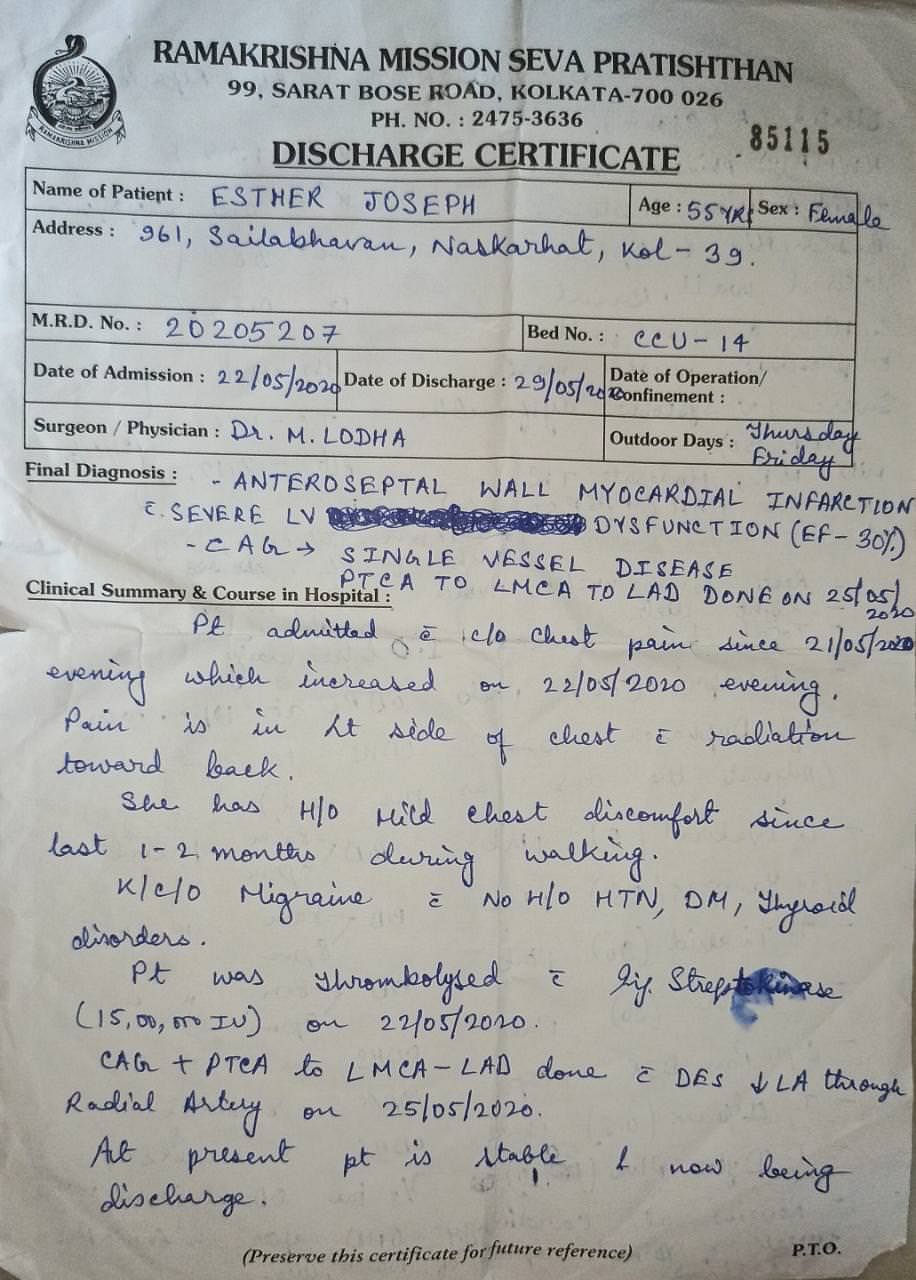 RAMAKRISHNA MISSION SEVA PRATISHTHAN
99, SARAT BOSE ROAD, KOLKATA-700 026
PH. NO. : 2475-3636
85115
RAMAKRISHNA MISSION
DISCHARGE CERTIFICATE
Name of Patient : ESTHER JOSEPH Age : 55 YRS Sex : Female
Address : 961, Sailabhavan, Naskarhat, Kol - 39.
M.R.D. No. : 20205207 Bed No. : CCU - 14
Date of Admission : 22/05/2020 Date of Discharge : 29/05/2020 Date of Operation/
Confinement :
Surgeon / Physician : Dr. M. LODHA Outdoor Days : Thursday
Friday
Final Diagnosis : - ANTEROSEPTAL WALL MYOCARDIAL INFARCTION
c̄ SEVERE LV DYSFUNCTION (EF - 30%)
- CAG → SINGLE VESSEL DISEASE
PTCA TO LMCA TO LAD DONE ON 25/05/
2020
Clinical Summary & Course in Hospital :
Pt admitted c̄ c/o chest pain since 21/05/2020
evening which increased on 22/05/2020 evening.
Pain is in Lt side of chest c̄ radiation
toward back.
She has H/O Mild chest discomfort since
last 1-2 months during walking.
K/C/O Migraine c̄ No H/O HTN, DM, Thyroid
disorders.
Pt was Thrombolysed c̄ Inj. Streptokinase
(15,00,000 IU) on 22/05/2020.
CAG + PTCA to LMCA - LAD done c̄ DES ↓ LA through
Radial Artery on 25/05/2020.
At present pt is stable & now being
discharge.
(Preserve this certificate for future reference) P.T.O.